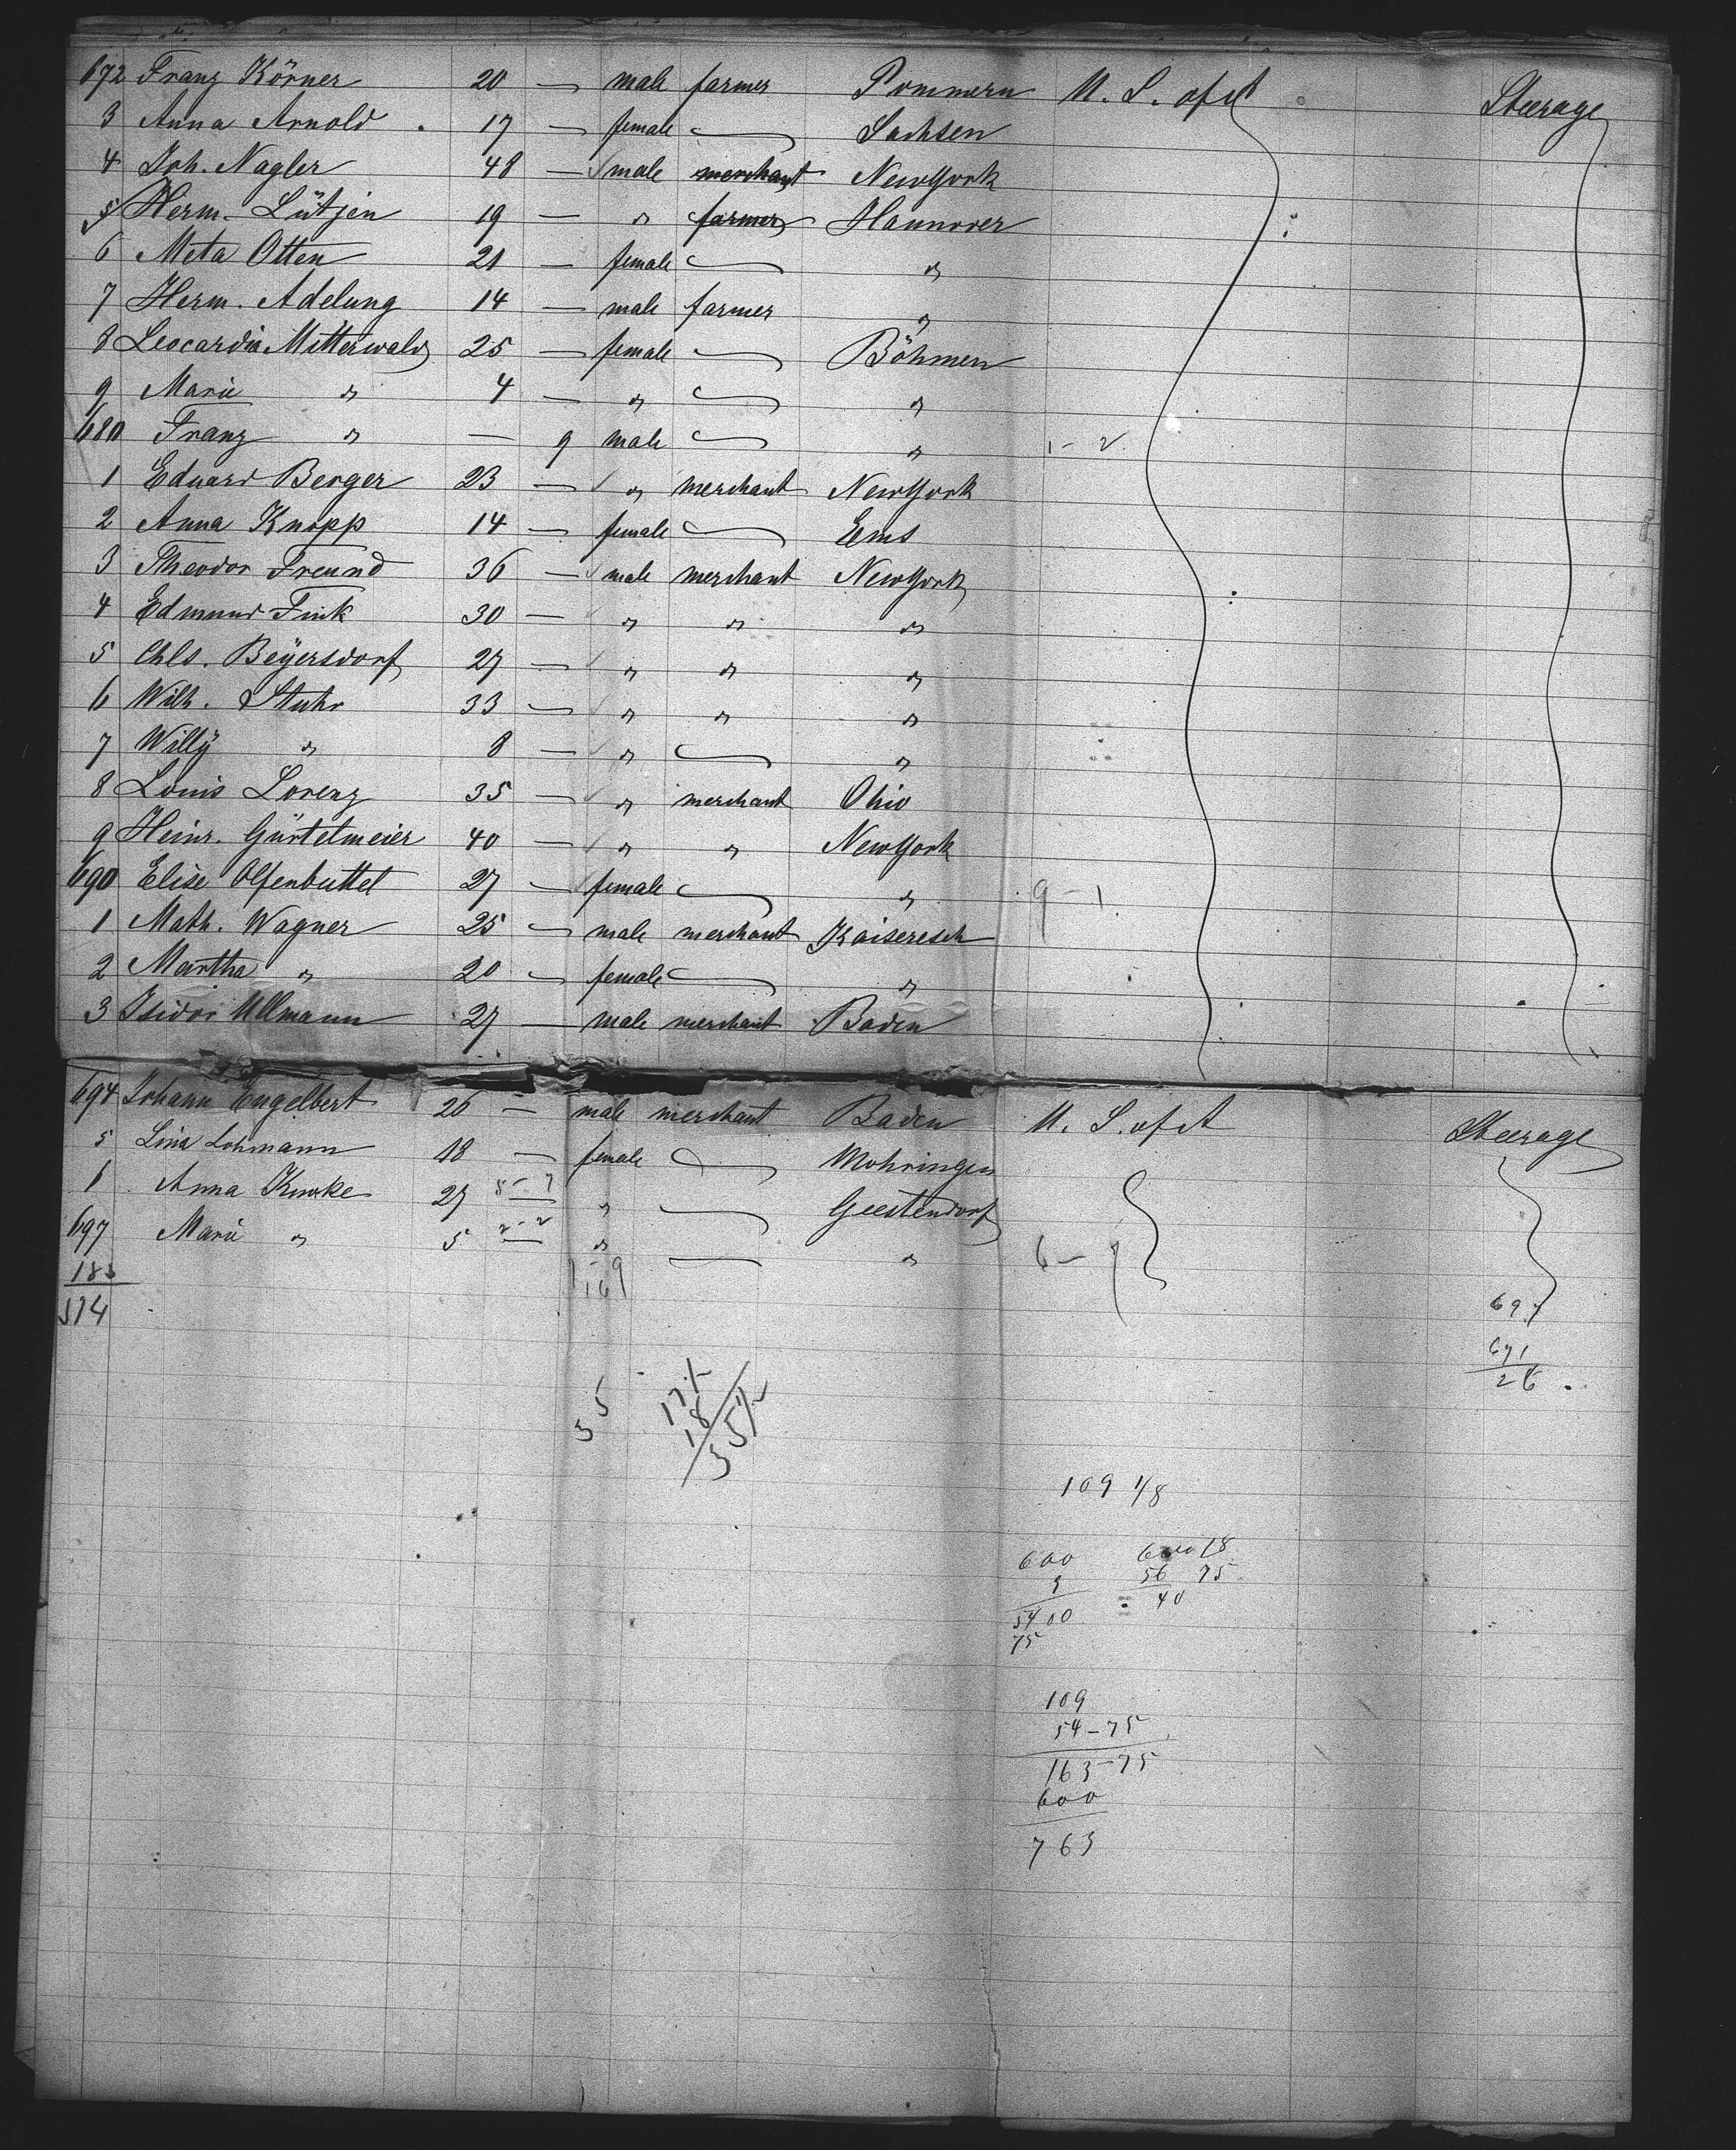 672 Franz Körner 20 — male farmer Pommern U. S. of A Steerage
3 Anna Arnold 17 — female — Sachsen
4 Joh. Nagler 48 — male merchant NewYork
5 Herm. Lütjen 19 — " farmer Hannover
6 Meta Otten 21 — female — "
7 Herm. Adelung 14 — male farmer "
8 Leocardia Mitterwald 25 — female — Böhmen
9 Marie " 4 — " — "
680 Franz " — 9 male — " 1 - 2
1 Eduard Berger 23 — " merchant NewYork
2 Anna Knopp 14 — female — Ems
3 Theodor Freund 36 — male merchant NewYork
4 Edmund Fink 30 — " " "
5 Chls. Beÿersdorf 27 — " " "
6 Wilh. Stuhr 33 — " " "
7 Willÿ " 8 — " — "
8 Louis Lorenz 35 — " merchant Ohio
9 Heinr. Gürtelmeier 40 — " " NewYork
690 Elise Olfenbuttel 27 — female — " 9 - 1
1 Math. Wagner 25 — male merchant Kaiseresch
2 Martha " 20 — female — "
3 Isidor Ullmann 27 — male merchant Baden
694 Johann Engelbert 26 — male merchant Baden U. S. of A Steerage
5 Lina Lohmann 18 — female — Mohringen
6 Anna 27 — " — Geestendorf
697 Marie " 5 2-2 — " — "
183
514
697
671
26
5
3
17 1/2
18
35 1/2
109 1/8
600
9
5400
75
56 75
40
109
54-75
163-75
600
763